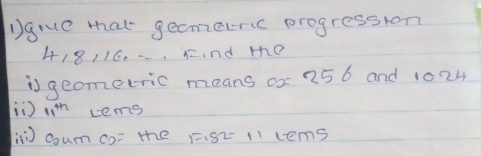 1) give that geometric progression
4, 8, 16. - . Find the
i) geometric means of 256 and 1024
ii) 11th tems
iii) Sum of the Fisz 11 tems